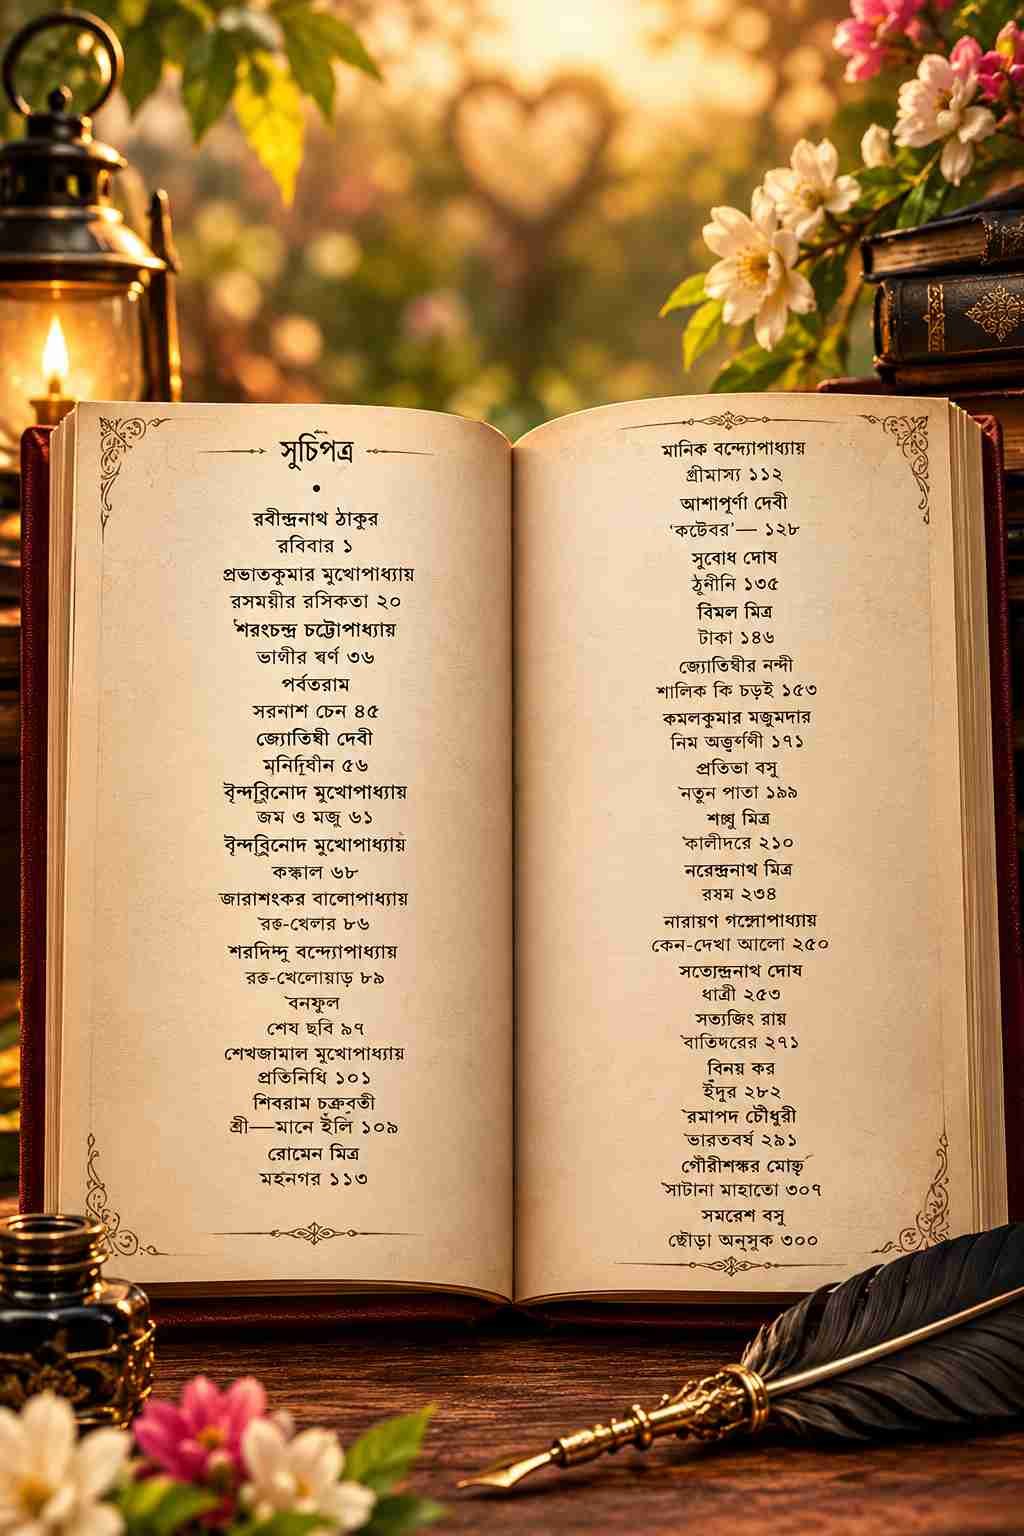 সুচিপত্র
রবীন্দ্রনাথ ঠাকুর
রবিবার ১
প্রভাতকুমার মুখোপাধ্যায়
রসময়ীর রসিকতা ২০
শরৎচন্দ্র চট্টোপাধ্যায়
ভাগীর স্বর্ণ ৩৬
পর্বতরাম
সরনাশ চেন ৪৫
জ্যোতিষী দেবী
৫৬
মুখোপাধ্যায়
জম ও মজু ৬১
মুখোপাধ্যায়
কঙ্কাল ৬৮
জারাশংকর বালোপাধ্যায়
রক্ত-খেলার ৮৬
শরদিন্দু বন্দ্যোপাধ্যায়
রক্ত-খেলোয়াড় ৮৯
বনফুল
শেষ ছবি ৯৭
শেখজামাল মুখোপাধ্যায়
প্রতিনিধি ১০১
শিবরাম চক্রবর্তী
শ্রী—মানে ইঁলি ১০৯
রোমেন মিত্র
মহনগর ১১৩
মানিক বন্দ্যোপাধ্যায়
১১২
আশাপূর্ণা দেবী
১২৮
সুবোধ দোষ
ঠুনীনি ১৩৫
বিমল মিত্র
টাকা ১৪৬
জ্যোতিষীর নন্দী
শালিক কি চড়ই ১৫৩
কমলকুমার মজুমদার
নিম ১৭১
প্রতিভা বসু
নতুন পাতা ১৯৯
মিত্র
কালীদরে ২১০
নরেন্দ্রনাথ মিত্র
রষম ২৩৪
নারায়ণ গঙ্গোপাধ্যায়
কেন-দেখা আলো ২৫০
সত্যেন্দ্রনাথ দোষ
ধাত্রী ২৫৩
সত্যজিৎ রায়
বাতিদরের ২৭১
বিনয় কর
ইঁদুর ২৮২
রমাপদ চৌধুরী
ভারতবর্ষ ২৯১
গৌরীশঙ্কর
সাটানা মাহাতো ৩০৭
সমরেশ বসু
ছোঁড়া অনুসুক ৩০০